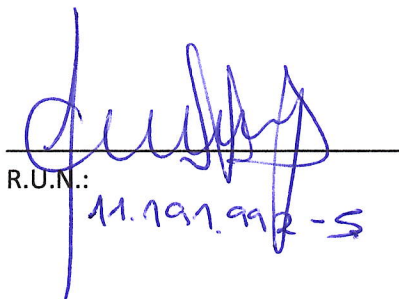 R.U.N.:
11.191.992-5